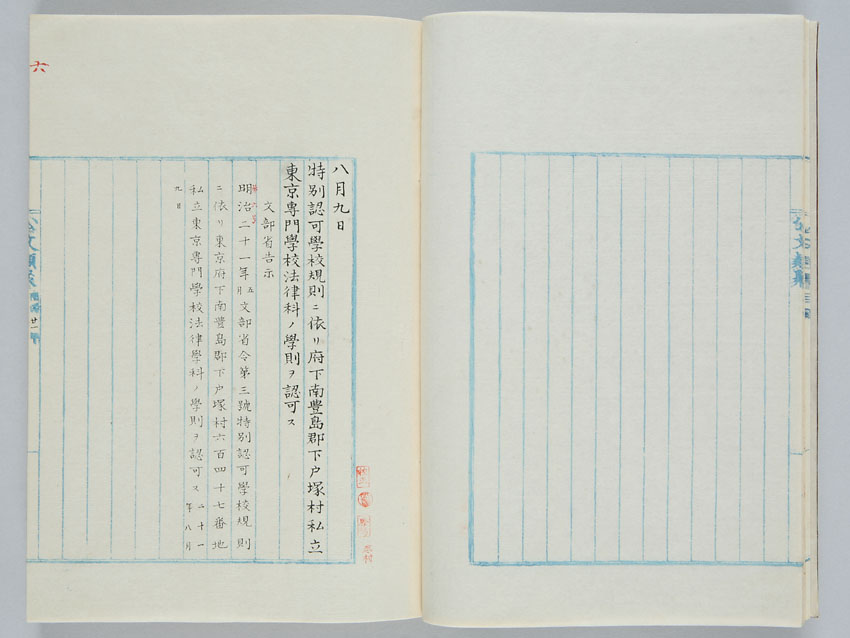 八月九日
特別認可學校規則ニ依リ府下南豐島郡下戸塚村私立
東京專門學校法律科ノ學則ヲ認可ス
文部省告示
明治二十一年五月文部省令第三號特別認可學校規則
ニ依リ東京府下南豐島郡下戸塚村六百四十七番地
私立東京專門學校法律學科ノ學則ヲ認可ス 二十一年八月
九日
六
公文類聚
廿一